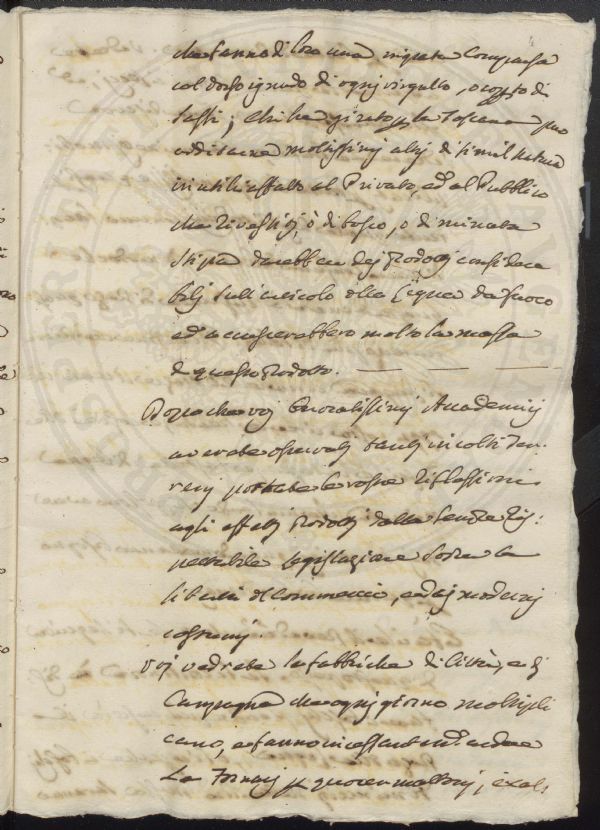 che fanno di loro una ingrata comparsa
col dosso ignudo di ogni virgulto, o coperto di
sassi; chi ha girato per la Toscana può
additarne moltissimi altri di simil natura
inutili affatto al Privato, ed al Pubblico
che rivestiti, ò di bosco, o di minuta
stipa darebber dei prodotti considera
bili sull'articolo delle Legna da fuoco
ed accrescerebbero molto la massa
di questo prodotto.
Dopo che voi Onoratissimi Accademici
averete osservati tanti incolti ter-
reni portate le vostre riflessioni
agli effetti prodotti dalla sempre ris:
pettabile legislazione sopra la
libertà del Commercio, e dai moderni
costumi.
Voi vedrete le fabbriche di Città, e di
Campagna che ogni giorno moltipli
cano, e fanno incessantem.e ardere
Le Fornaci per quocer mattoni, e calc